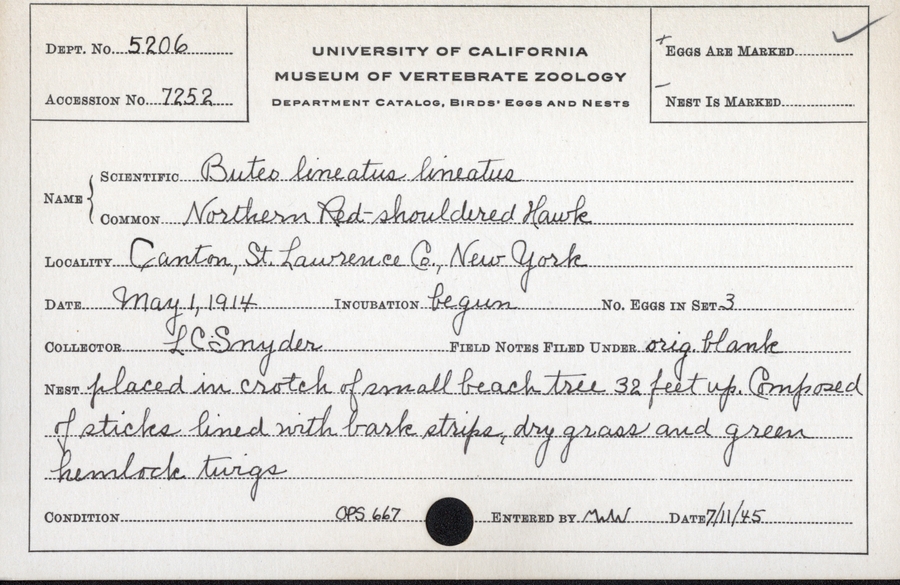 DEPT. No. 5206
UNIVERSITY OF CALIFORNIA
+ EGGS ARE MARKED ✓
MUSEUM OF VERTEBRATE ZOOLOGY
ACCESSION No. 7252
DEPARTMENT CATALOG, BIRDS' EGGS AND NESTS
– NEST IS MARKED
NAME { SCIENTIFIC Buteo lineatus lineatus
COMMON Northern Red-shouldered Hawk
LOCALITY Canton, St. Lawrence Co., New York
DATE May 1, 1914 INCUBATION begun No. EGGS IN SET 3
COLLECTOR L C Snyder FIELD NOTES FILED UNDER orig. blank
NEST placed in crotch of small beach tree 32 feet up. Composed
of sticks lined with bark strips, dry grass and green
hemlock twigs
CONDITION OPS 667 ENTERED BY MWW DATE 7/11/45